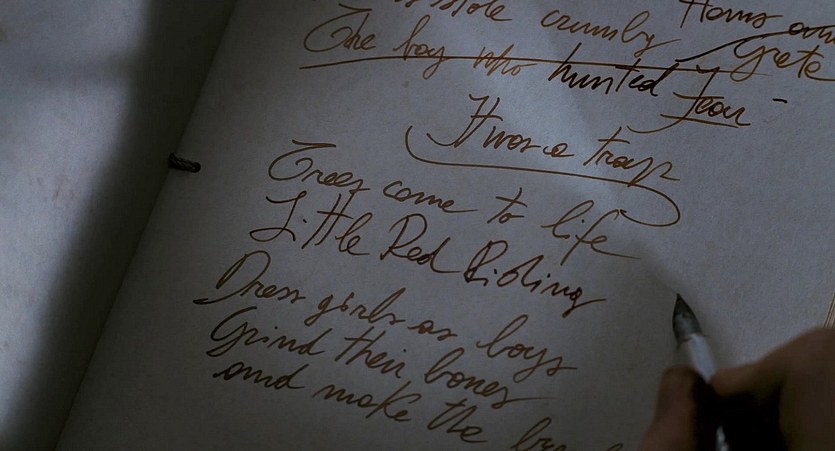 stole crumbly Hans and
Grete
The boy who hunted fear -
It was a trap
Trees come to life
Little Red Riding
Dress girls as boys
Grind their bones
and make the